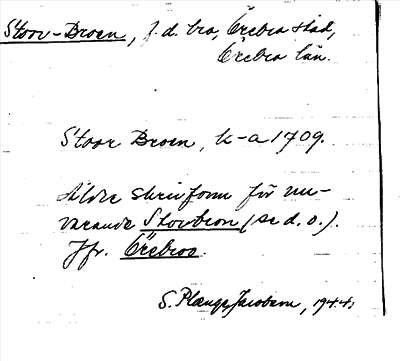 Stoor-Broen, f. d. bro, Örebro stad,
Örebro län.
Stoor Broen, k-a 1709.
Äldre skrivform för nu-
varande Storbron (se d. o.).
Jfr. Örebro.
S. Plange Jacobson, 1944.